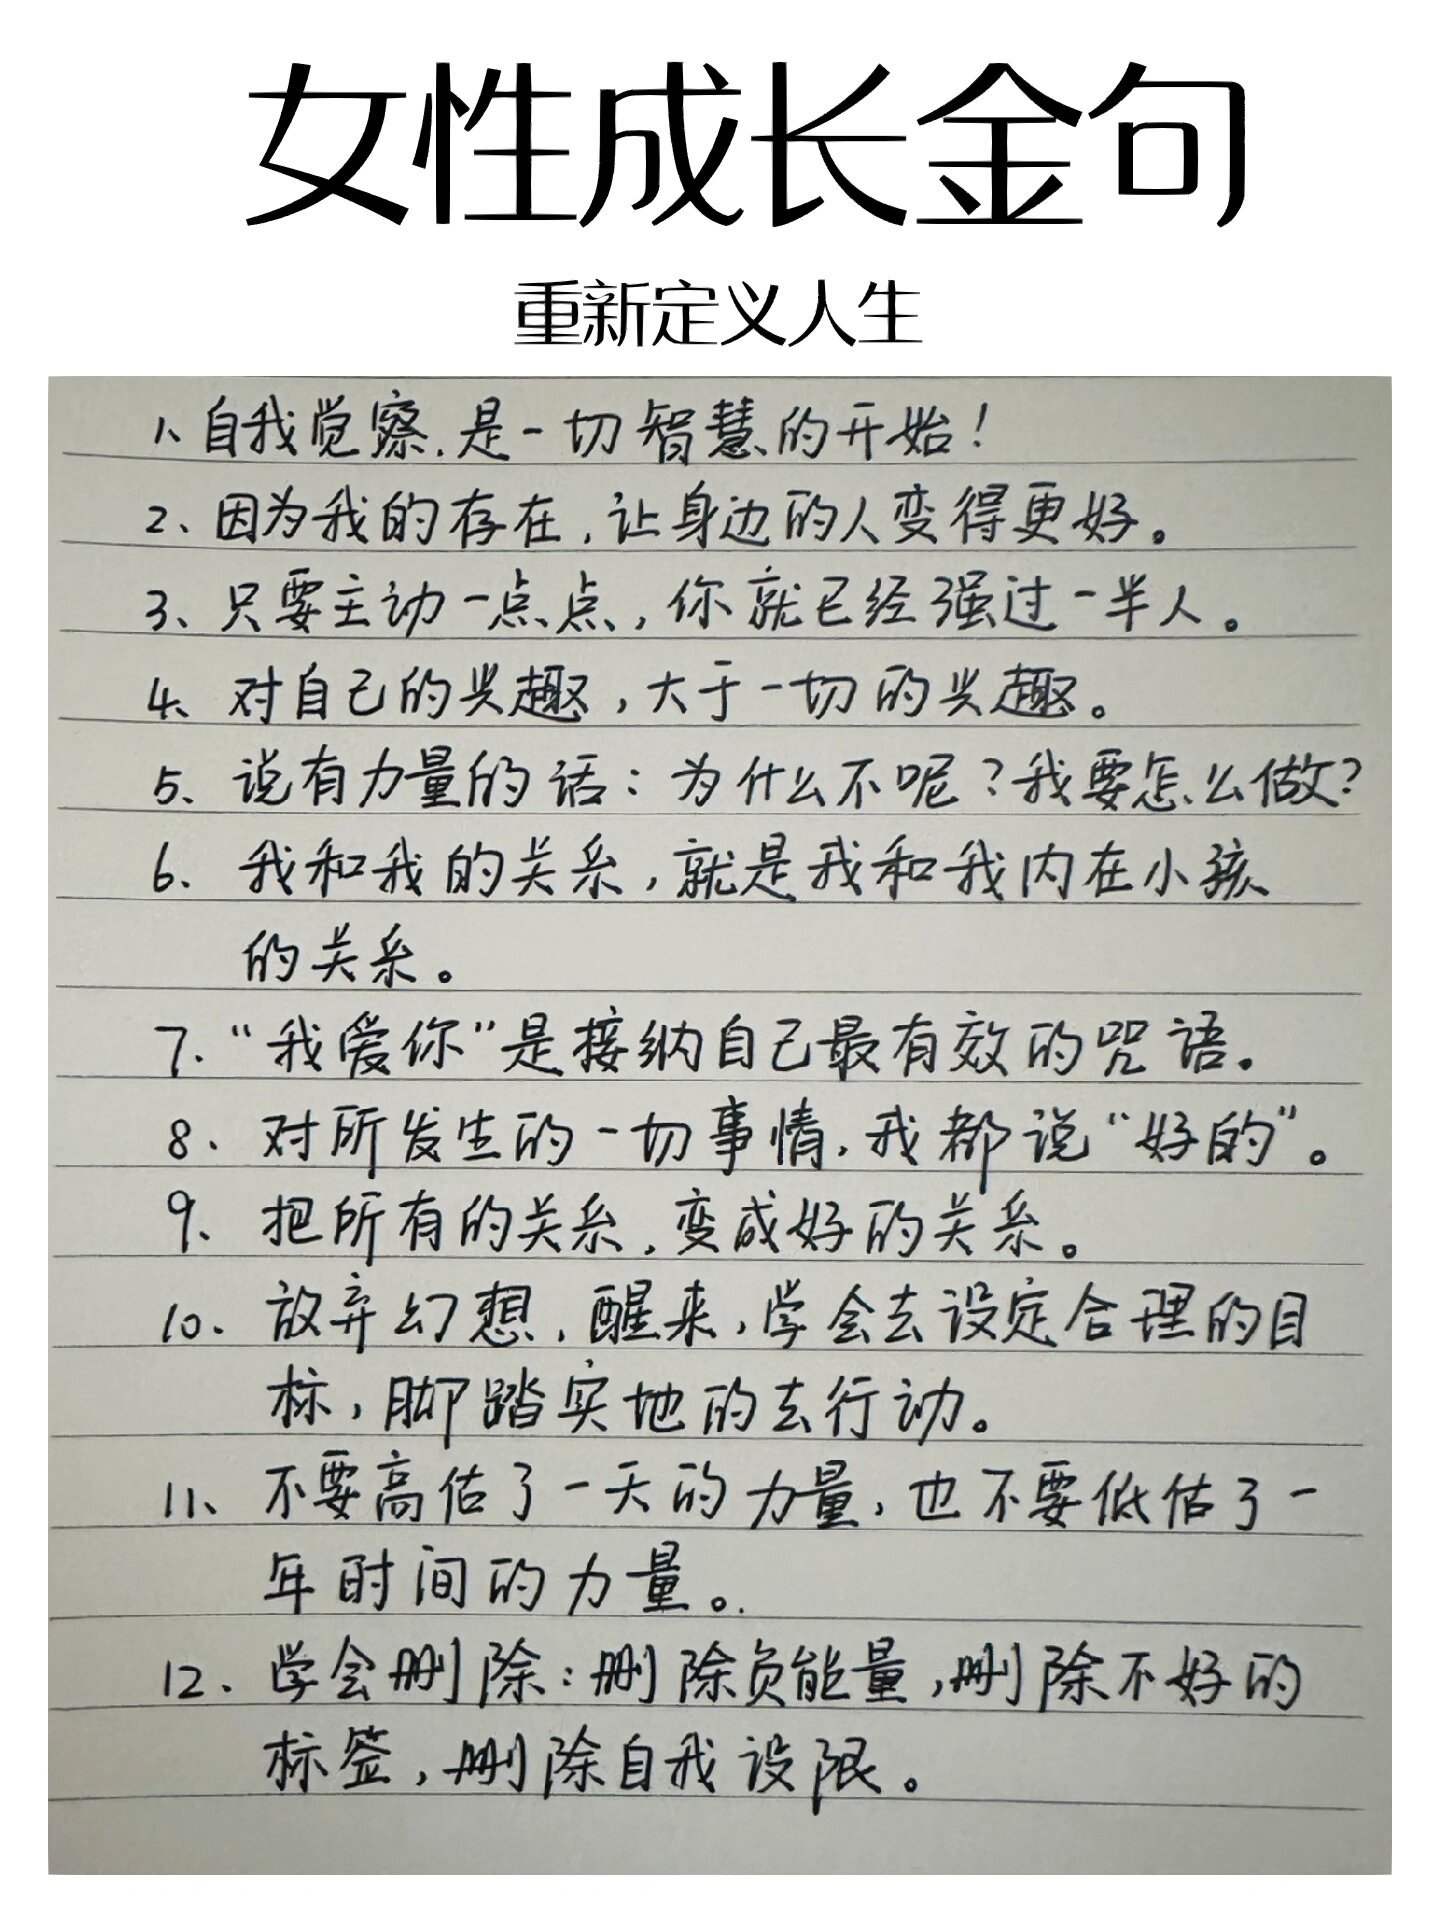 女性成长金句
重新定义人生
1、自我觉察,是一切智慧的开始!
2、因为我的存在,让身边的人变得更好。
3、只要主动一点点,你就已经强过一半人。
4、对自己的兴趣,大于一切的兴趣。
5、说有力量的话:为什么不呢?我要怎么做?
6、我和我的关系,就是我和我内在小孩
的关系。
7."我爱你"是接纳自己最有效的咒语。
8.对所发生的一切事情,我都说"好的"。
9、把所有的关系,变成好的关系。
10.放弃幻想,醒来,学会去设定合理的目
标,脚踏实地的去行动。
11、不要高估了一天的力量,也不要低估了一
年时间的力量。
12.学会删除:删除负能量,删除不好的
标签,删除自我设限。